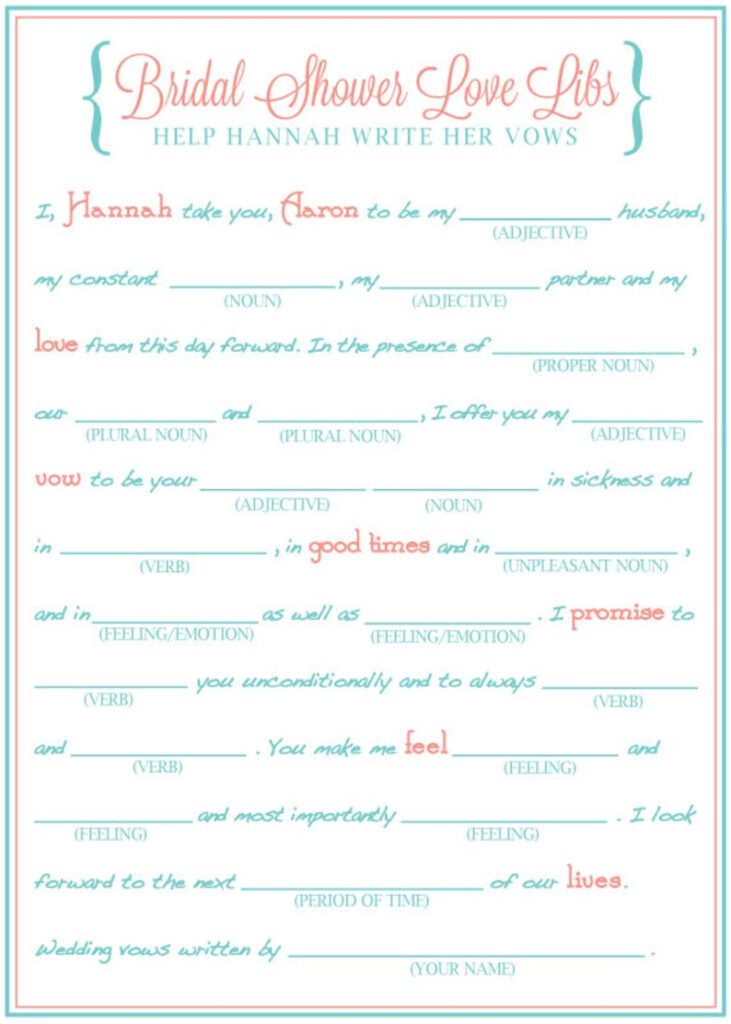 Bridal Shower Love Libs
HELP HANNAH WRITE HER VOWS
I, Hannah take you, Aaron to be my ______________ husband,
(ADJECTIVE)
my constant ______________, my ______________ partner and my
(NOUN) (ADJECTIVE)
love from this day forward. In the presence of ______________,
(PROPER NOUN)
our ______________ and ______________, I offer you my ______________
(PLURAL NOUN) (PLURAL NOUN) (ADJECTIVE)
vow to be your ______________ ______________ in sickness and
(ADJECTIVE) (NOUN)
in ______________, in good times and in ______________,
(VERB) (UNPLEASANT NOUN)
and in ______________ as well as ______________. I promise to
(FEELING/EMOTION) (FEELING/EMOTION)
______________ you unconditionally and to always ______________
(VERB) (VERB)
and ______________. You make me feel ______________ and
(VERB) (FEELING)
______________ and most importantly ______________. I look
(FEELING) (FEELING)
forward to the next ______________ of our lives.
(PERIOD OF TIME)
Wedding vows written by ______________.
(YOUR NAME)